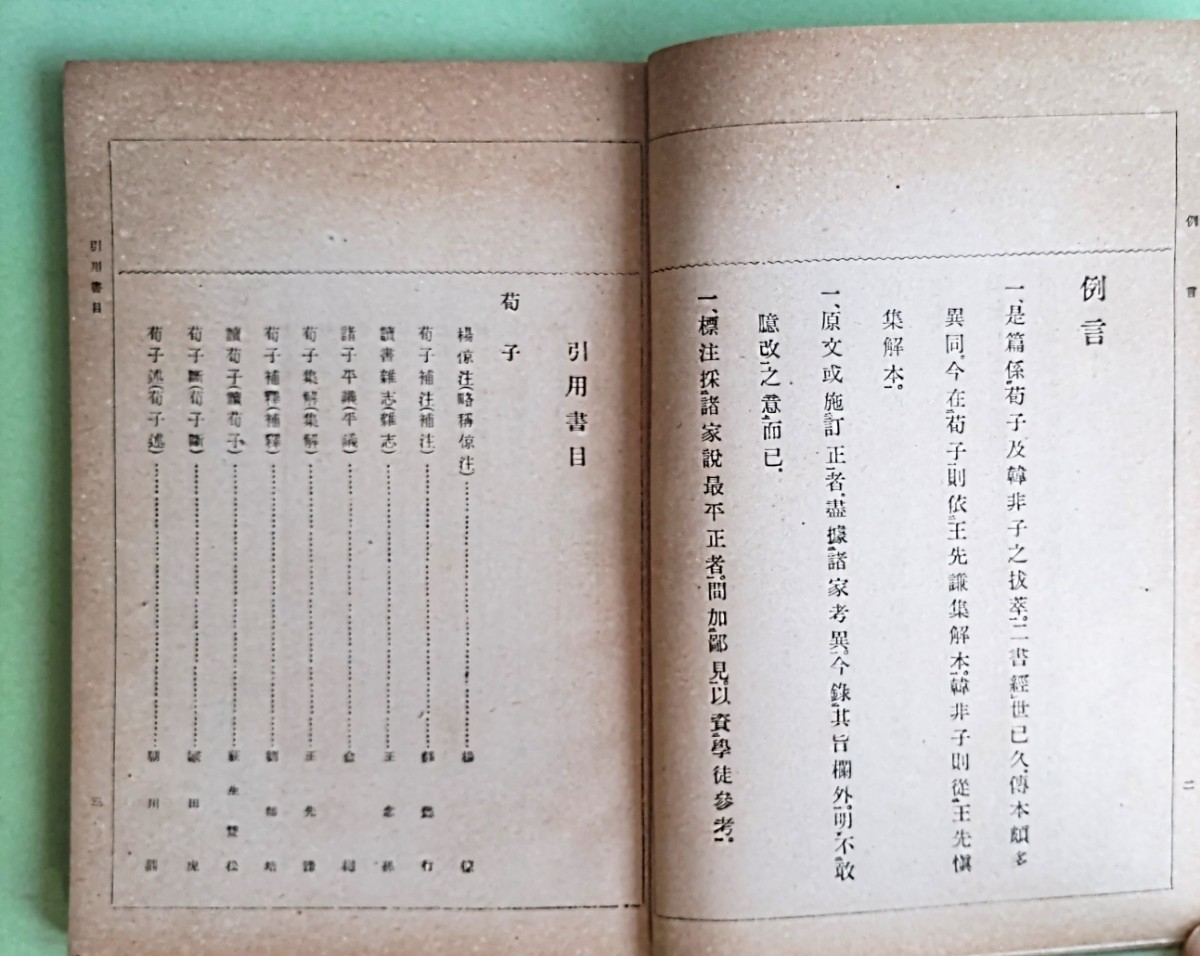 例言
一、是篇係荀子及韓非子之拔萃。二書經世已久、傳本頗多
異同。今在荀子則依王先謙集解本。韓非子則從王先愼
集解本。
一、原文或施訂正者、盡據諸家考異。今錄其旨欄外。明不敢
臆改之意而已。
一、標注採諸家說最平正者。間加鄙見。以資學徒參考。
例言
二
引用書目
荀子
楊倞注(略稱倞注)………楊倞
荀子補注(補注)………郝懿行
讀書雜志(雜志)………王念孫
諸子平議(平議)………俞樾
荀子集解(集解)………王先謙
荀子補釋(補釋)………劉師培
讀荀子(讀荀子)………荻生雙松
荀子斷(荀子斷)………冢田虎
荀子述(荀子述)………朝川鼎
引用書目
三